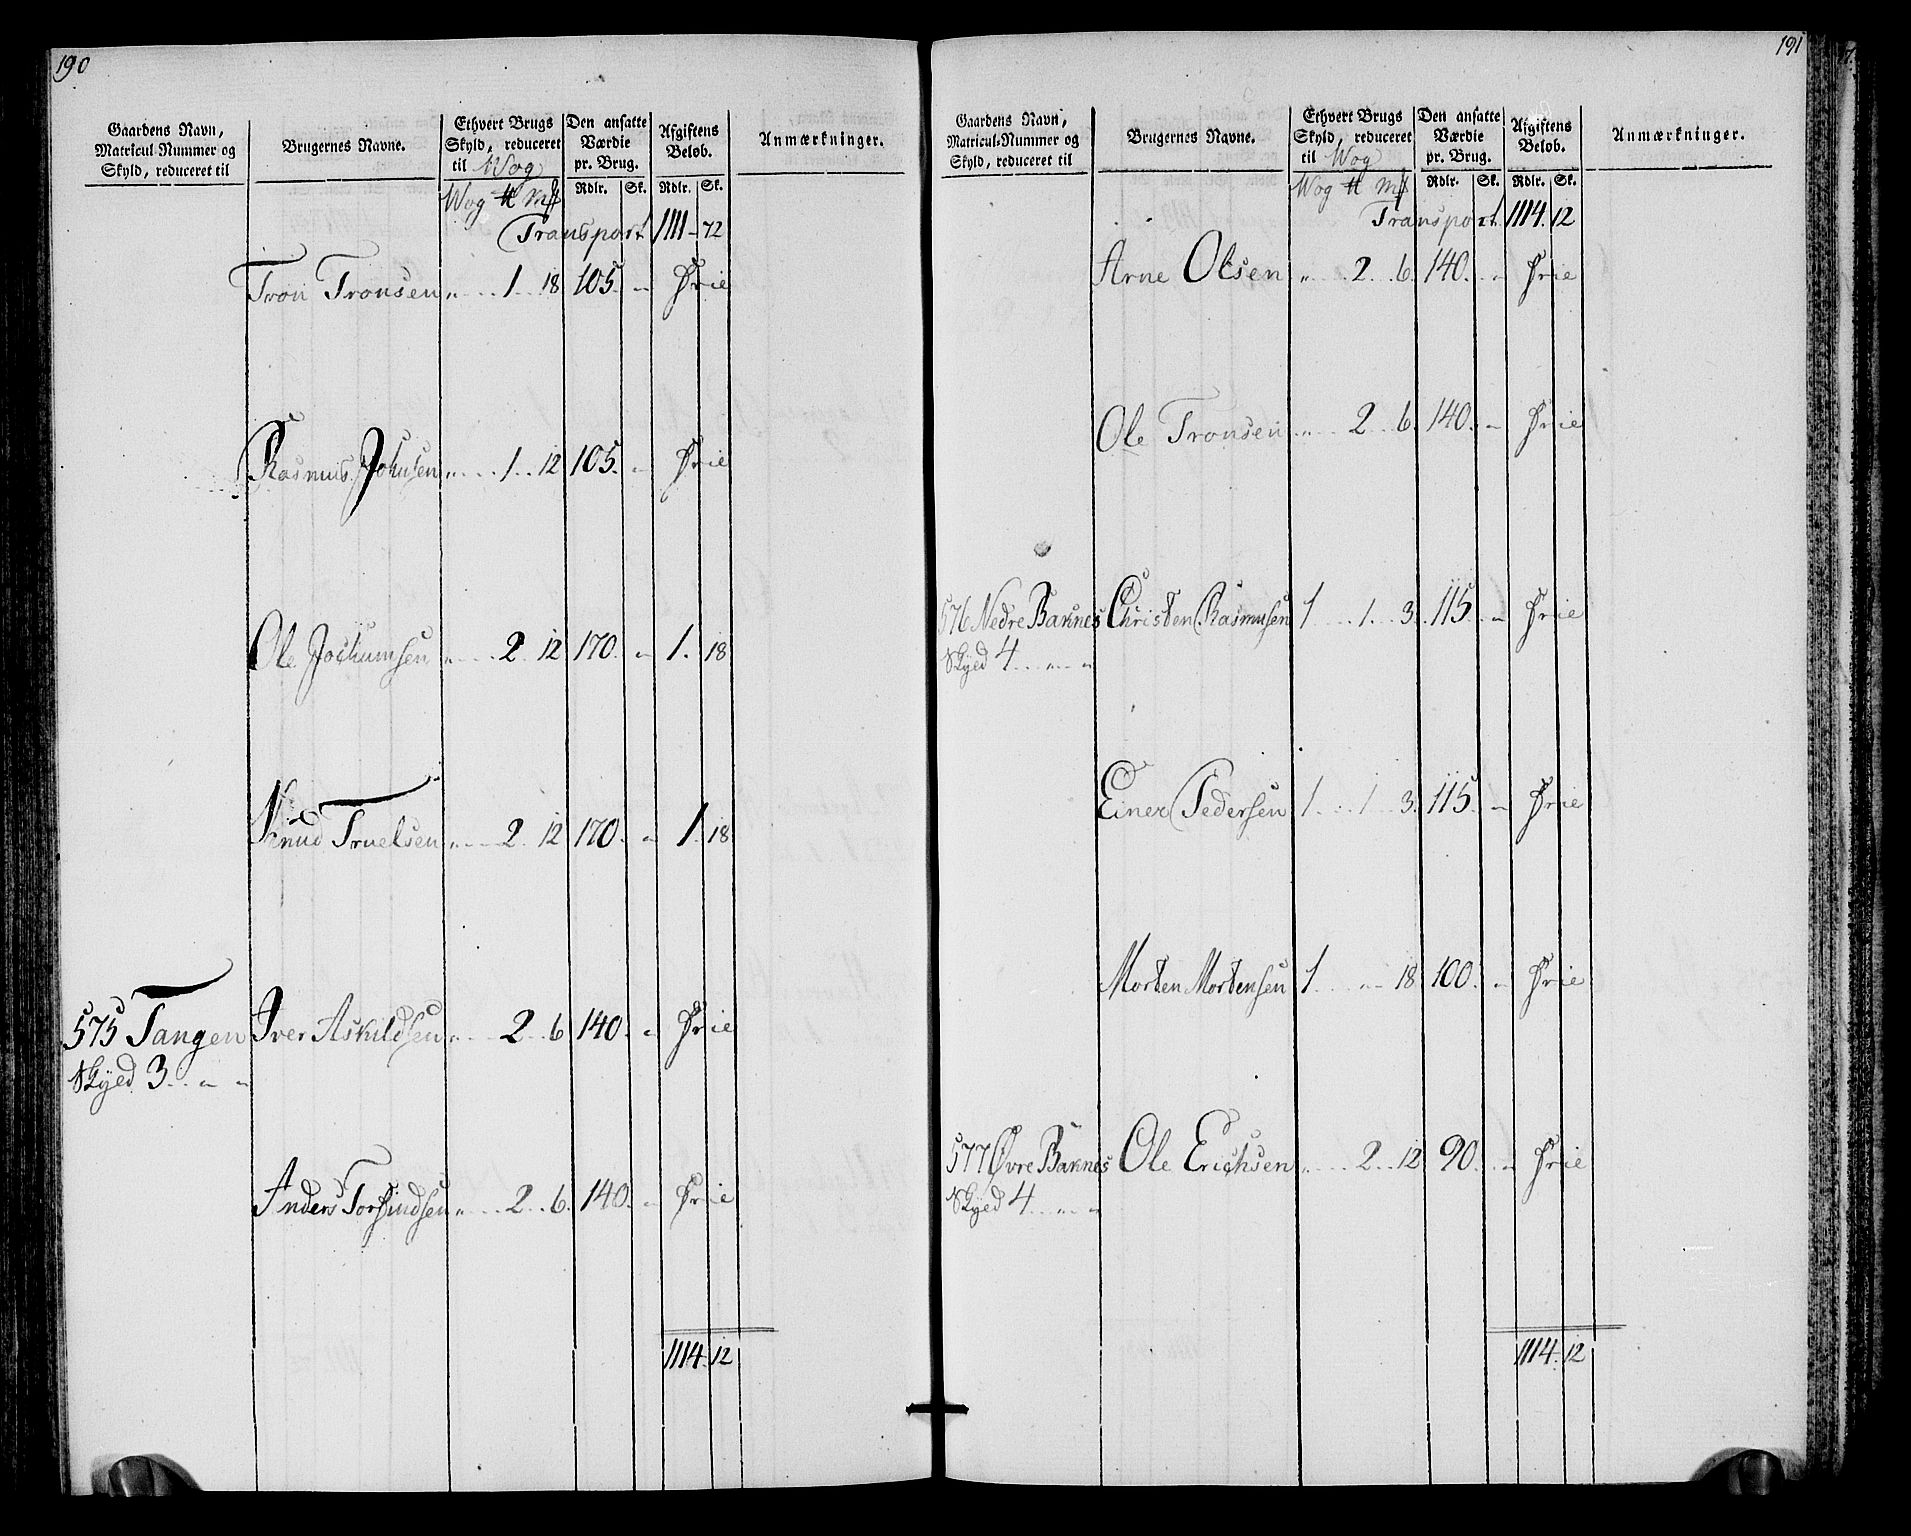 190
Gaardens Navn,
Matricul-Nummer og
Skyld, reduceret til
Brugernes Navne.
Ethvert Brugs
Skyld, reduceret
til Wog
Den ansatte
Værdie
pr. Brug.
Afgiftens
Beløb.
Anmærkninger.
Wog ℔ m℔ Rdlr. Sk. Rdlr. Sk.
Transport 1111 - 72
Tron Tronsen „ . . . 1 . . 18 105. „ Frie
Rasmus Johnsen „ . . . 1 . . 12 105. „ Frie
Ole Jochumsen „ . . . 2 . 12 170. „ 1. 18
Knud Truelsen „ . . . 2 . 12 170. „ 1. 18
575 Tangen Iver Askildsen „ . . . 2 . . 6 140. „ Frie
Skyed 3 . . „ „
Anders Torfindsen „ . . . 2 . . 6. 140. „ Frie
1114. 12
191
Gaardens Navn,
Matricul-Nummer og
Skyld, reduceret til
Brugernes Navne.
Ethvert Brugs
Skyld, reduceret
til Wog
Den ansatte
Værdie
pr. Brug.
Afgiftens
Beløb.
Anmærkninger.
Wog ℔ m℔ Rdlr. Sk. Rdlr. Sk.
Transport 1114. 12
Arne Olsen „ . . . 2 . . 6. 140. „ Frie
Ole Tronsen „ . . . 2 . . 6. 140. „ Frie
576 Nedre Baknes Christen Rasmusen 1 . . . 1 . . 3. 115. „ Frie
Skyed 4 . . „ . . „
Einer Pedersen 1 . . . 1 . . 3. 115. „ Frie
Morten Mortensen 1 . . . „ . . 18 100. „ Frie
577 Øvre Baknes Ole Erichsen „ . . . 2 . . 12 90. „ Frie
Skyed 4 . . „ . . „
1114. 12